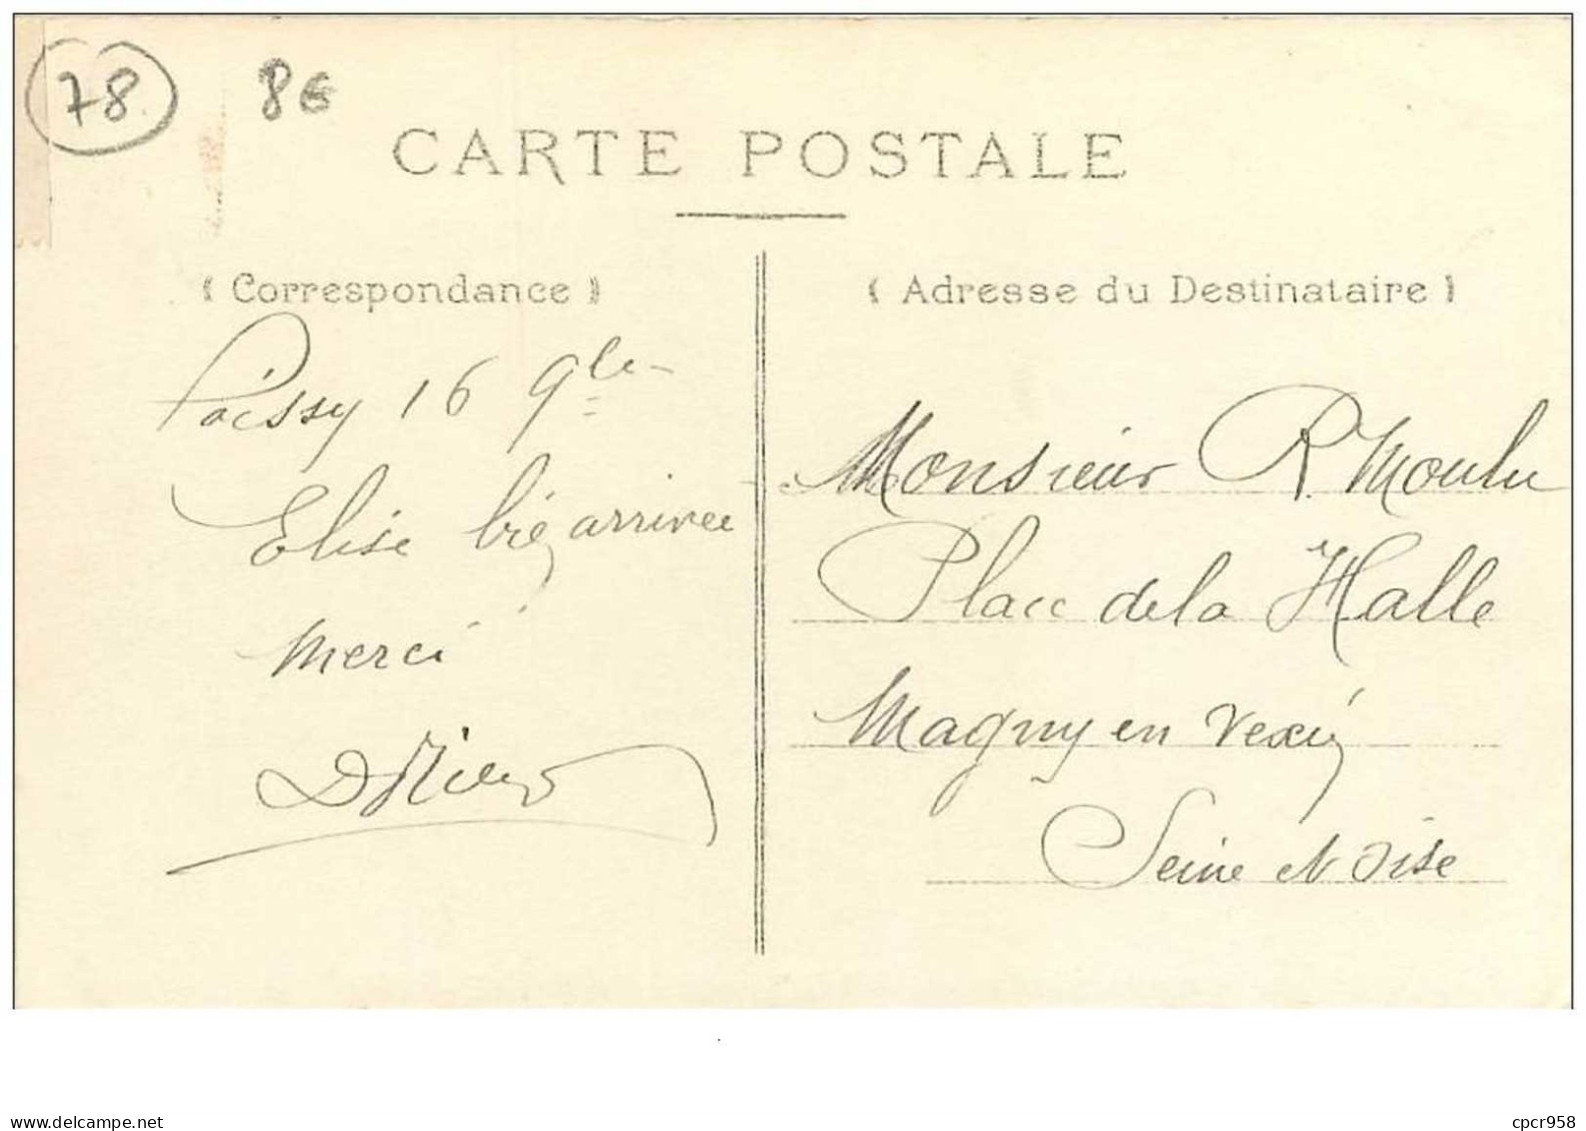 78
8€
CARTE POSTALE
Correspondance
Poissy 16 9bre
Elise bien arrivée
Merci
Adresse du Destinataire
Monsieur R. Moulu
Place de la Halle
Magny en Vexin
Seine et Oise
delcampe.net
cpcr958